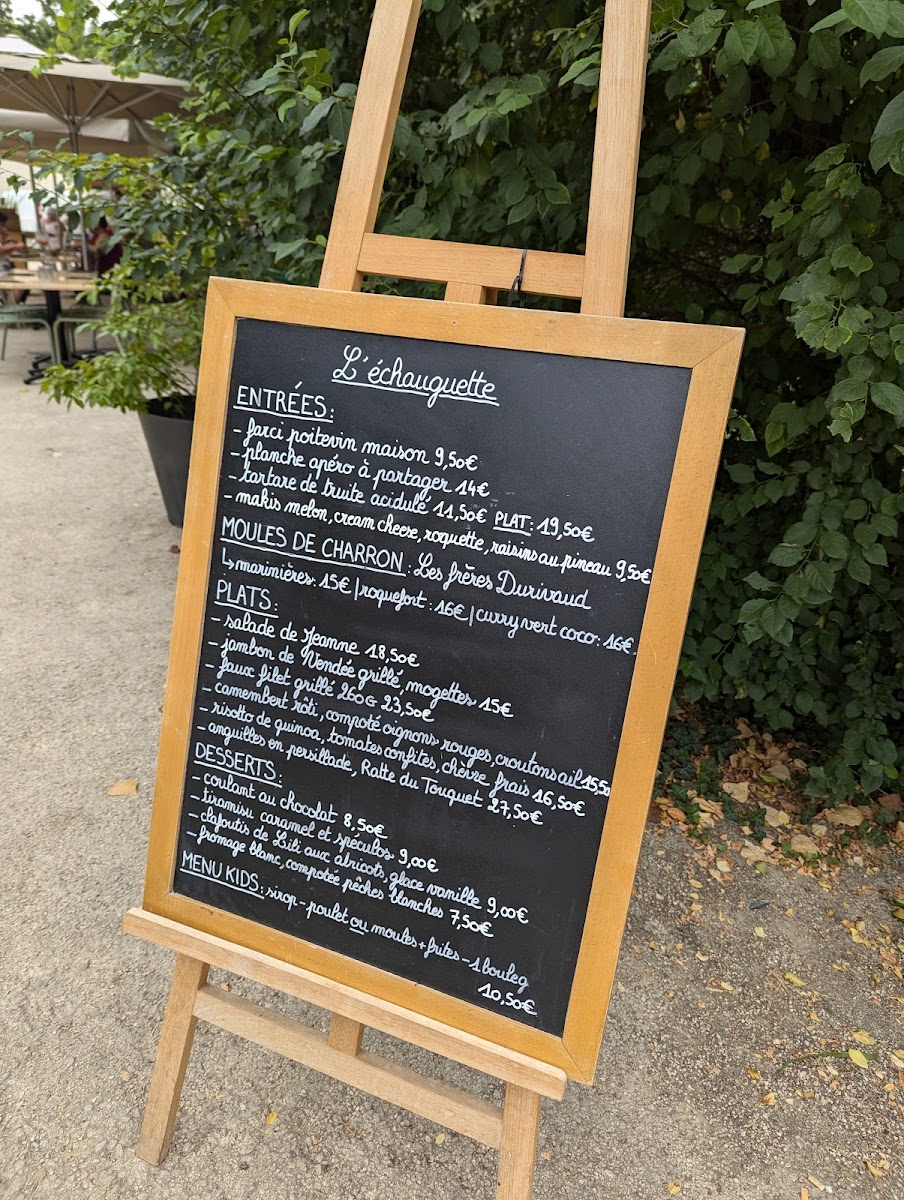 L'échauguette
ENTRÉES:
- farci poitevin maison 9,50€
- planche apéro à partager 14€
- tartare de truite acidulé 11,50€ PLAT: 19,50€
- makis melon, cream cheese, roquette, raisins au pineau 9,50€
MOULES DE CHARRON: Les frères Durivaud
↳ marinières: 15€ | roquefort: 16€ | curry vert coco: 16€
PLATS:
- salade de Jeanne 18,50€
- jambon de Vendée grillé, mogettes 15€
- faux filet grillé 260G 23,50€
- camembert rôti, compoté oignons rouges, croutons ail 15,50
- risotto de quinoa, tomates confites, chèvre frais 16,50€
- anguilles en persillade, Ratte du Touquet 27,50€
DESSERTS:
- coulant au chocolat 8,50€
- tiramisu caramel et spéculos 9,00€
- clafoutis de Lili aux abricots, glace vanille 9,00€
- fromage blanc, compotée pêches blanches 7,50€
MENU KIDS: sirop - poulet ou moules + frites - 1 bouleg
10,50€